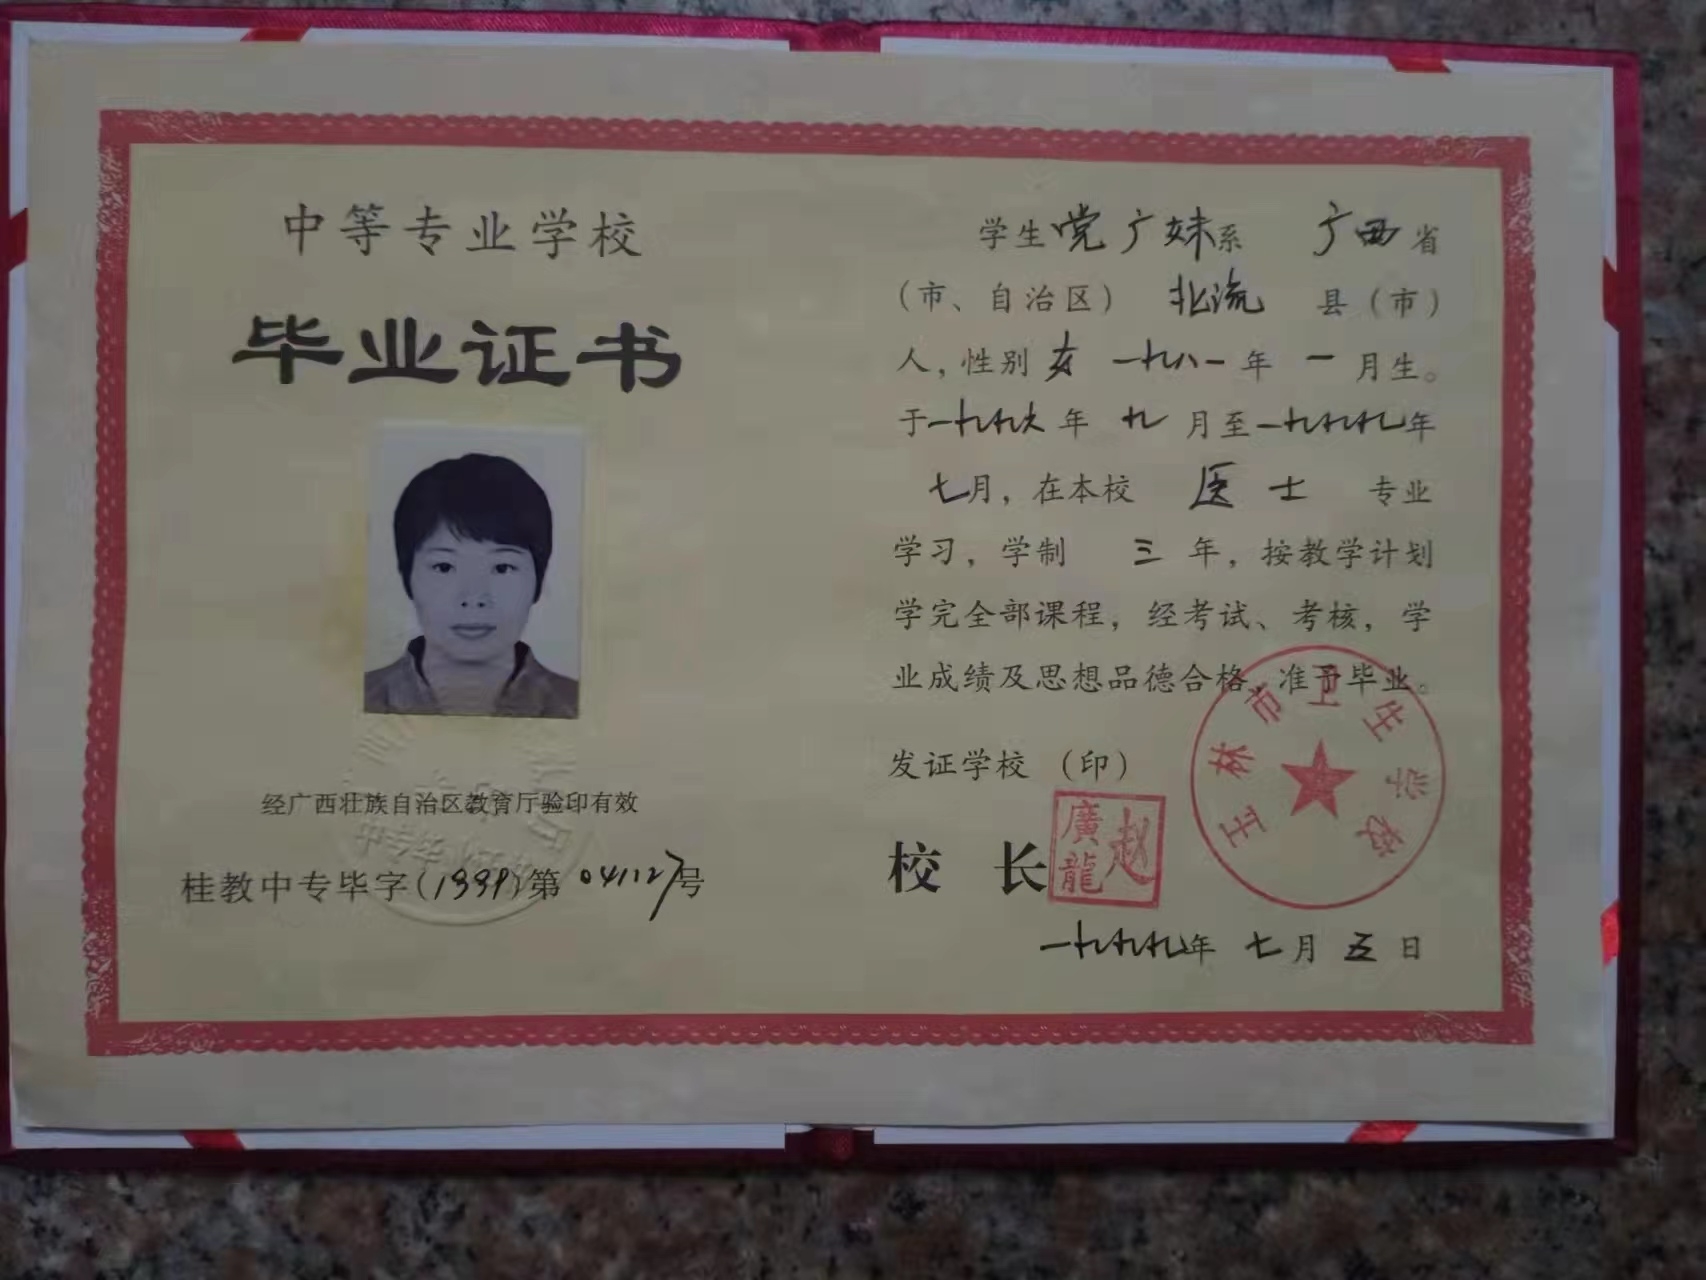 中等专业学校
毕业证书
经广西壮族自治区教育厅验印有效
桂教中专毕字(1999)第041127号
学生党广妹系 广西省
(市、自治区) 北流 县(市)
人,性别女 一九八一年 一月生。
于一九九六年 九月至一九九九年
七月,在本校 医士 专业
学习,学制 三年,按教学计划
学完全部课程,经考试、考核,学
业成绩及思想品德合格,准予毕业。
发证学校 (印)
玉林市卫生学校
校 长
赵廣龍
一九九九年 七月 五日